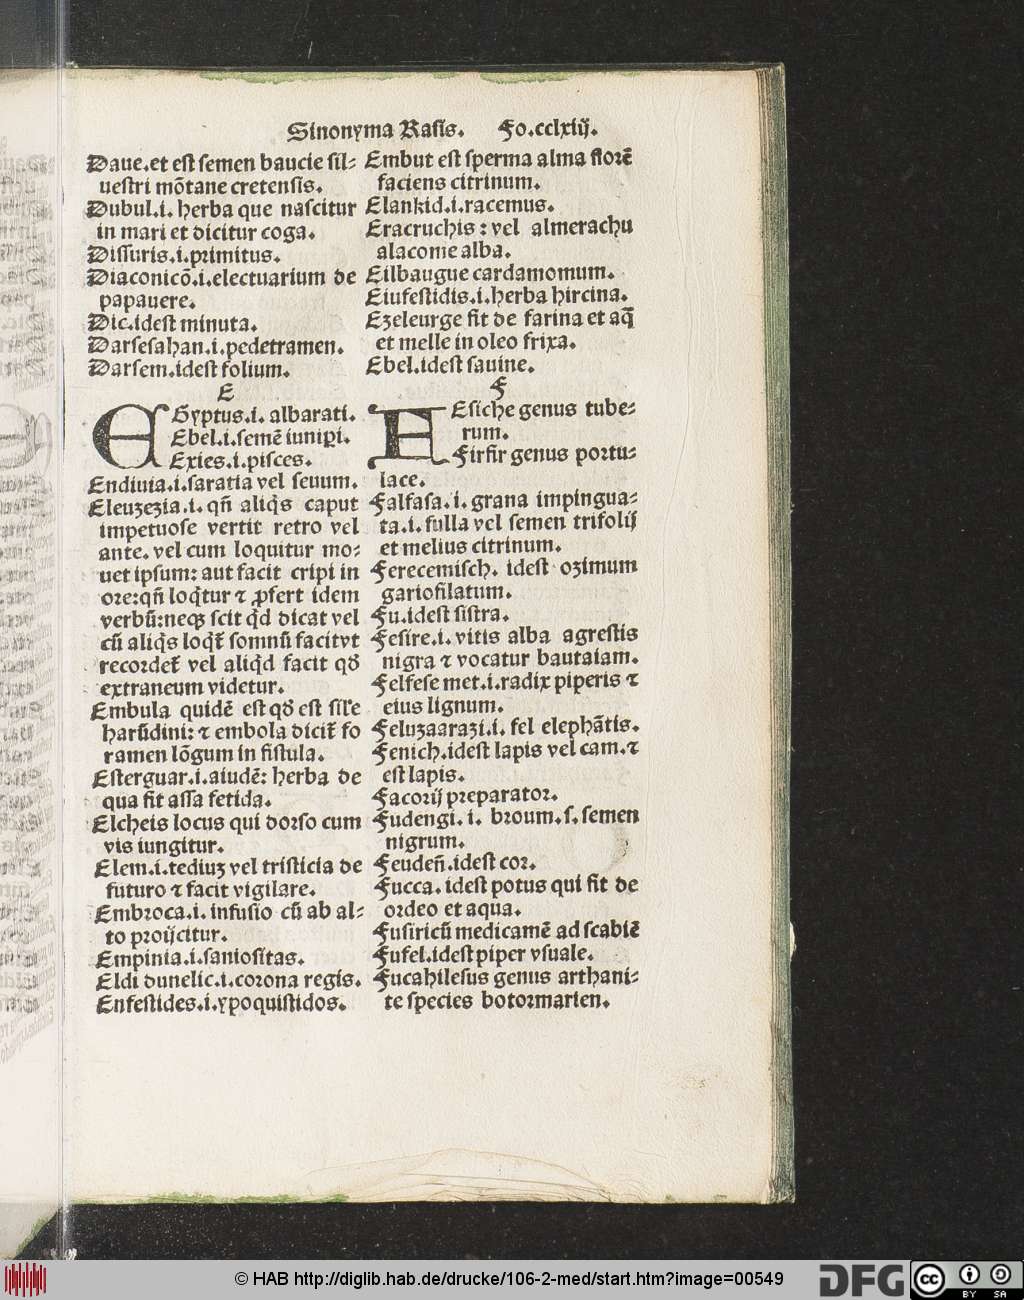 Sinonyma Rasis. Fo.cclxiij.
Daue.et est semen baucie sil-
uestri mōtane cretensis.
Dubul.i. herba que nascitur
in mari et dicitur coga.
Dissuris.i.primitus.
Diaconicō.i.electuarium de
papauere.
Dic.idest minuta.
Darsesahan.i.pedetramen.
Darsem.idest folium.
E
EGyptus.i. albarati.
Ebel.i.semē iuniꝑi.
Exies.i.pisces.
Endiuia.i.saratia vel seuum.
Eleuzezia.i. qñ aliq̇s caput
impetuose vertit retro vel
ante. vel cum loquitur mo-
uet ipsum: aut facit cripi in
ore:qñ loq̇tur ⁊ ꝓfert idem
verbū:neqꝫ scit q̇d dicat vel
cū aliq̇s loqt̄ somnū facitvt
recordet̄ vel aliq̇d facit qđ
extraneum videtur.
Embula quidē est qđ est sil'e
harūdini: ⁊ embola dicit̄ fo
ramen lōgum in fistula.
Esterguar.i.aiudē: herba de
qua fit assa fetida.
Elcheis locus qui dorso cum
vis iungitur.
Elem.i.tediuꝫ vel tristicia de
futuro ⁊ facit vigilare.
Embroca.i. infusio cū ab al-
to proijcitur.
Empinia.i.saniositas.
Eldi dunelic.i.corona regis.
Enfestides.i.ypoquistidos.
Embut est sperma alma florē
faciens citrinum.
Elankid.i.racemus.
Eracruchis: vel almerachu
alacome alba.
Eilbaugue cardamomum.
Eiufestidis.i.herba hircina.
Ezeleurge fit de farina et aq̄
et melle in oleo frixa.
Ebel.idest sauine.
F
FEsiche genus tube-
rum.
Firfir genus portu-
lace.
Falfasa.i. grana impingua-
ta.i. fulla vel semen trifolij
et melius citrinum.
Ferecemisch. idest ozimum
gariofilatum.
Fu.idest sistra.
Fesire.i. vitis alba agrestis
nigra ⁊ vocatur bautaiam.
Felfese met.i.radix piperis ⁊
eius lignum.
Feluzaarazi.i. fel elephātis.
Fenich.idest lapis vel cam.⁊
est lapis.
Facorij preparator.
Fudengi. i. broum.s. semen
nigrum.
Feudeñ.idest cor.
Fucca. idest potus qui fit de
ordeo et aqua.
Fusiricū medicamē ad scabiē
Fufel.idest piper vsuale.
Fucahilesus genus arthani-
te species botormarien.
© HAB http://diglib.hab.de/drucke/106-2-med/start.htm?image=00549
DFG
cc
BY SA